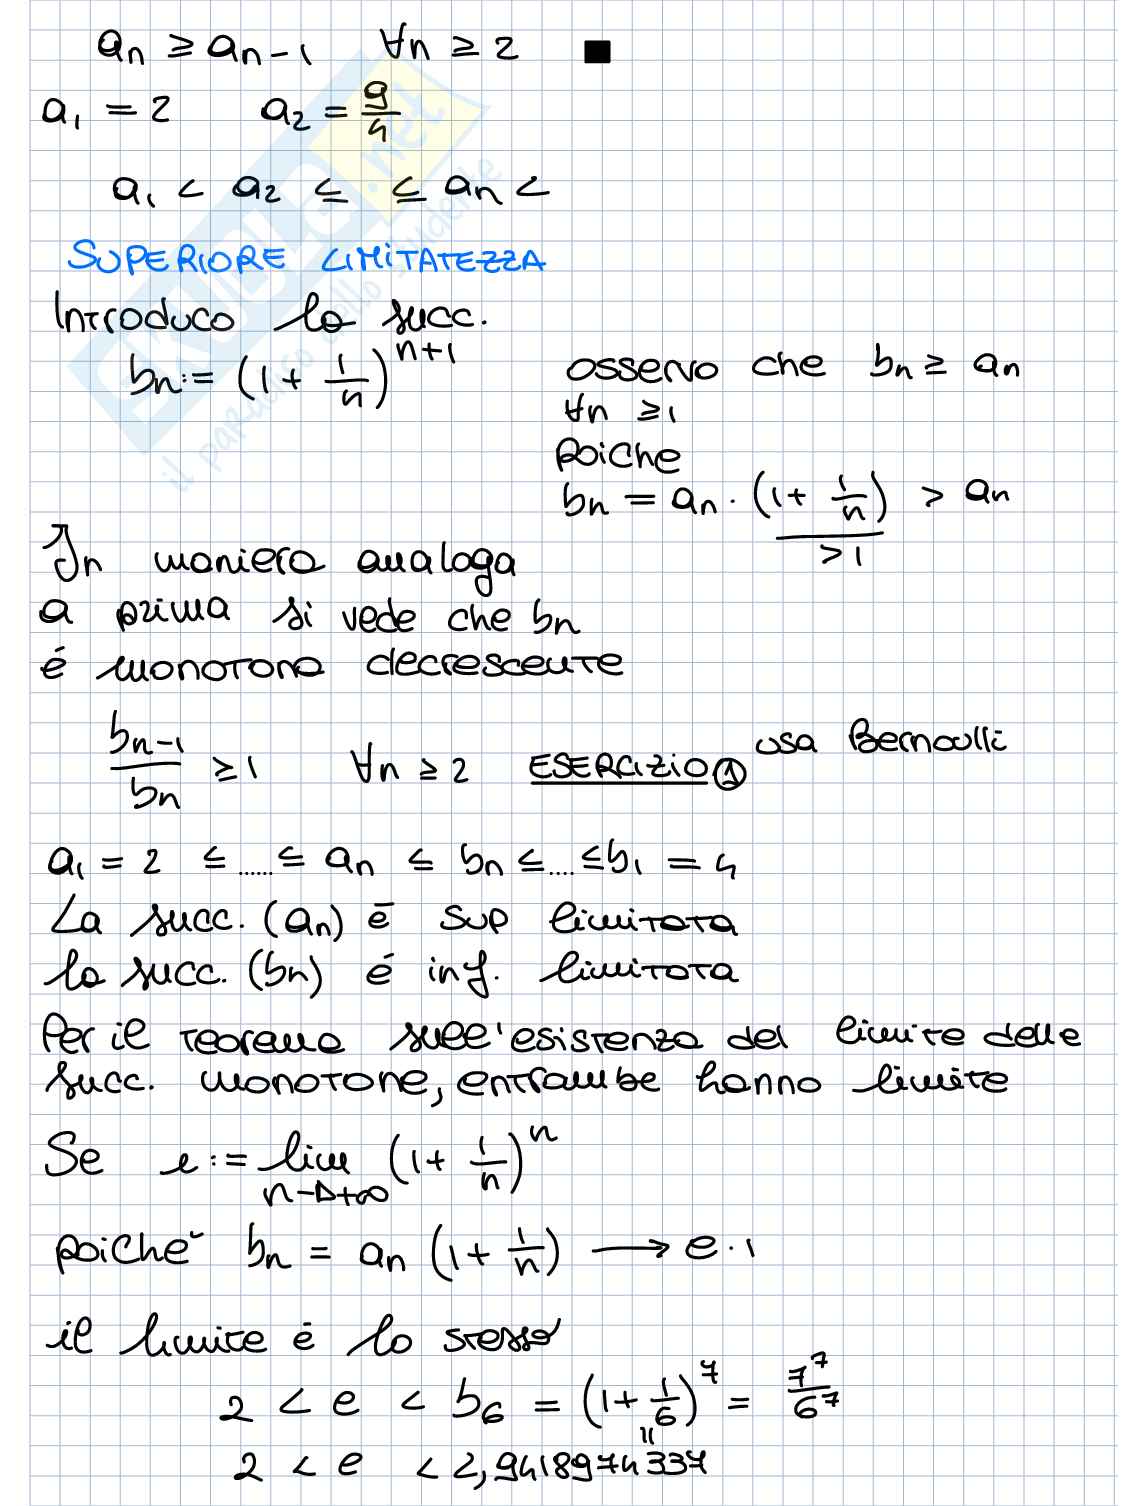 aₙ ≥ aₙ₋₁ ∀n ≥ 2 ■
a₁ = 2 a₂ = 9/4
a₁ < a₂ ≤ ≤ aₙ <
SUPERIORE LIMITATEZZA
Introduco la succ.
bₙ := (1 + 1/n)ⁿ⁺¹
osservo che bₙ ≥ aₙ
∀n ≥ 1
poiche
bₙ = aₙ · (1 + 1/n) > aₙ
> 1
In maniera analoga
a prima si vede che bₙ
é monotona decrescente
bₙ₋₁/bₙ ≥ 1 ∀n ≥ 2 ESERCIZIO ① usa Bernoulli
a₁ = 2 ≤ ...... ≤ aₙ ≤ bₙ ≤ .... ≤ b₁ = 4
La succ. (aₙ) è sup limitata
la succ. (bₙ) é inf. limitata
Per il teorema sull'esistenza del limite delle
succ. monotone, entrambe hanno limite
Se e := lim n→+∞ (1 + 1/n)ⁿ
poiche bₙ = aₙ (1 + 1/n) ⟶ e · 1
il limite è lo stesso
2 < e < b₆ = (1 + 1/6)⁷ = 7⁷/6⁷
"
2 < e < 2,9418974337
SKUOLA.net
il paradiso dello studente